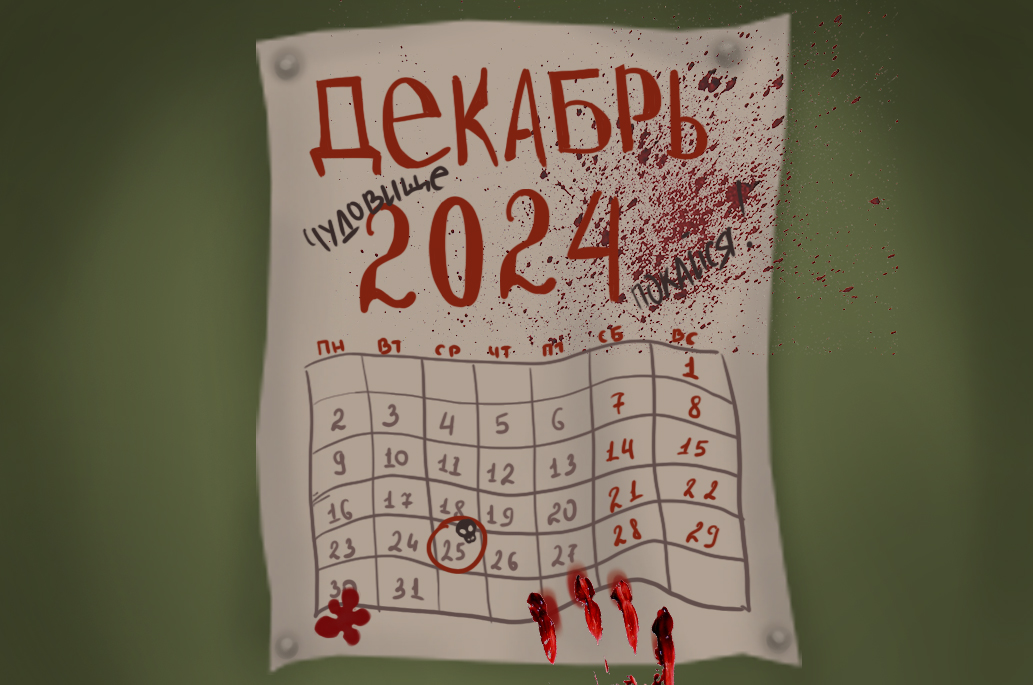 ДЕКАБРЬ
ЧУДОВИЩЕ
2024
ПОКАЙСЯ!
ПН ВТ СР ЧТ ПТ СБ ВС
1
2 3 4 5 6 7 8
9 10 11 12 13 14 15
16 17 18 19 20 21 22
23 24 25 26 27 28 29
30 31